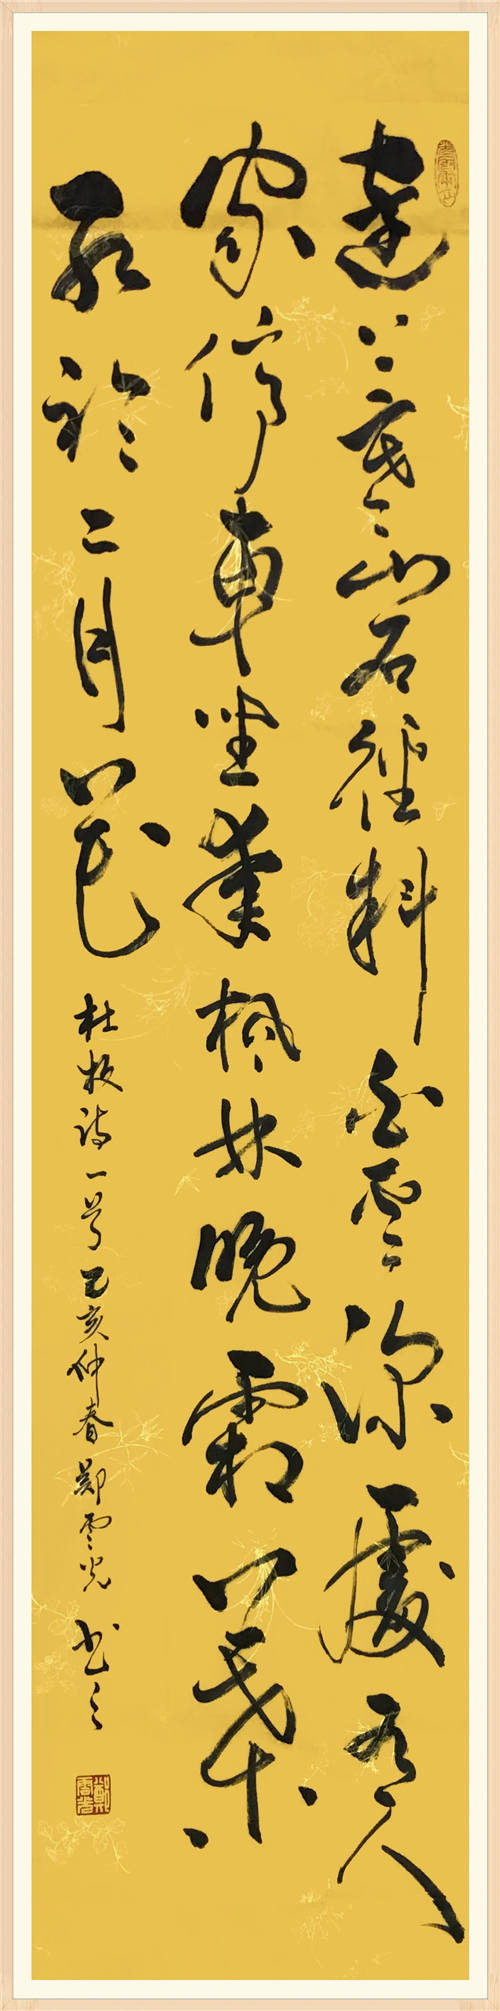 遠上寒山石徑斜白雲深處有人
家停車坐愛楓林晚霜葉
紅於二月花
杜牧詩一首己亥仲春鄭雲光書之